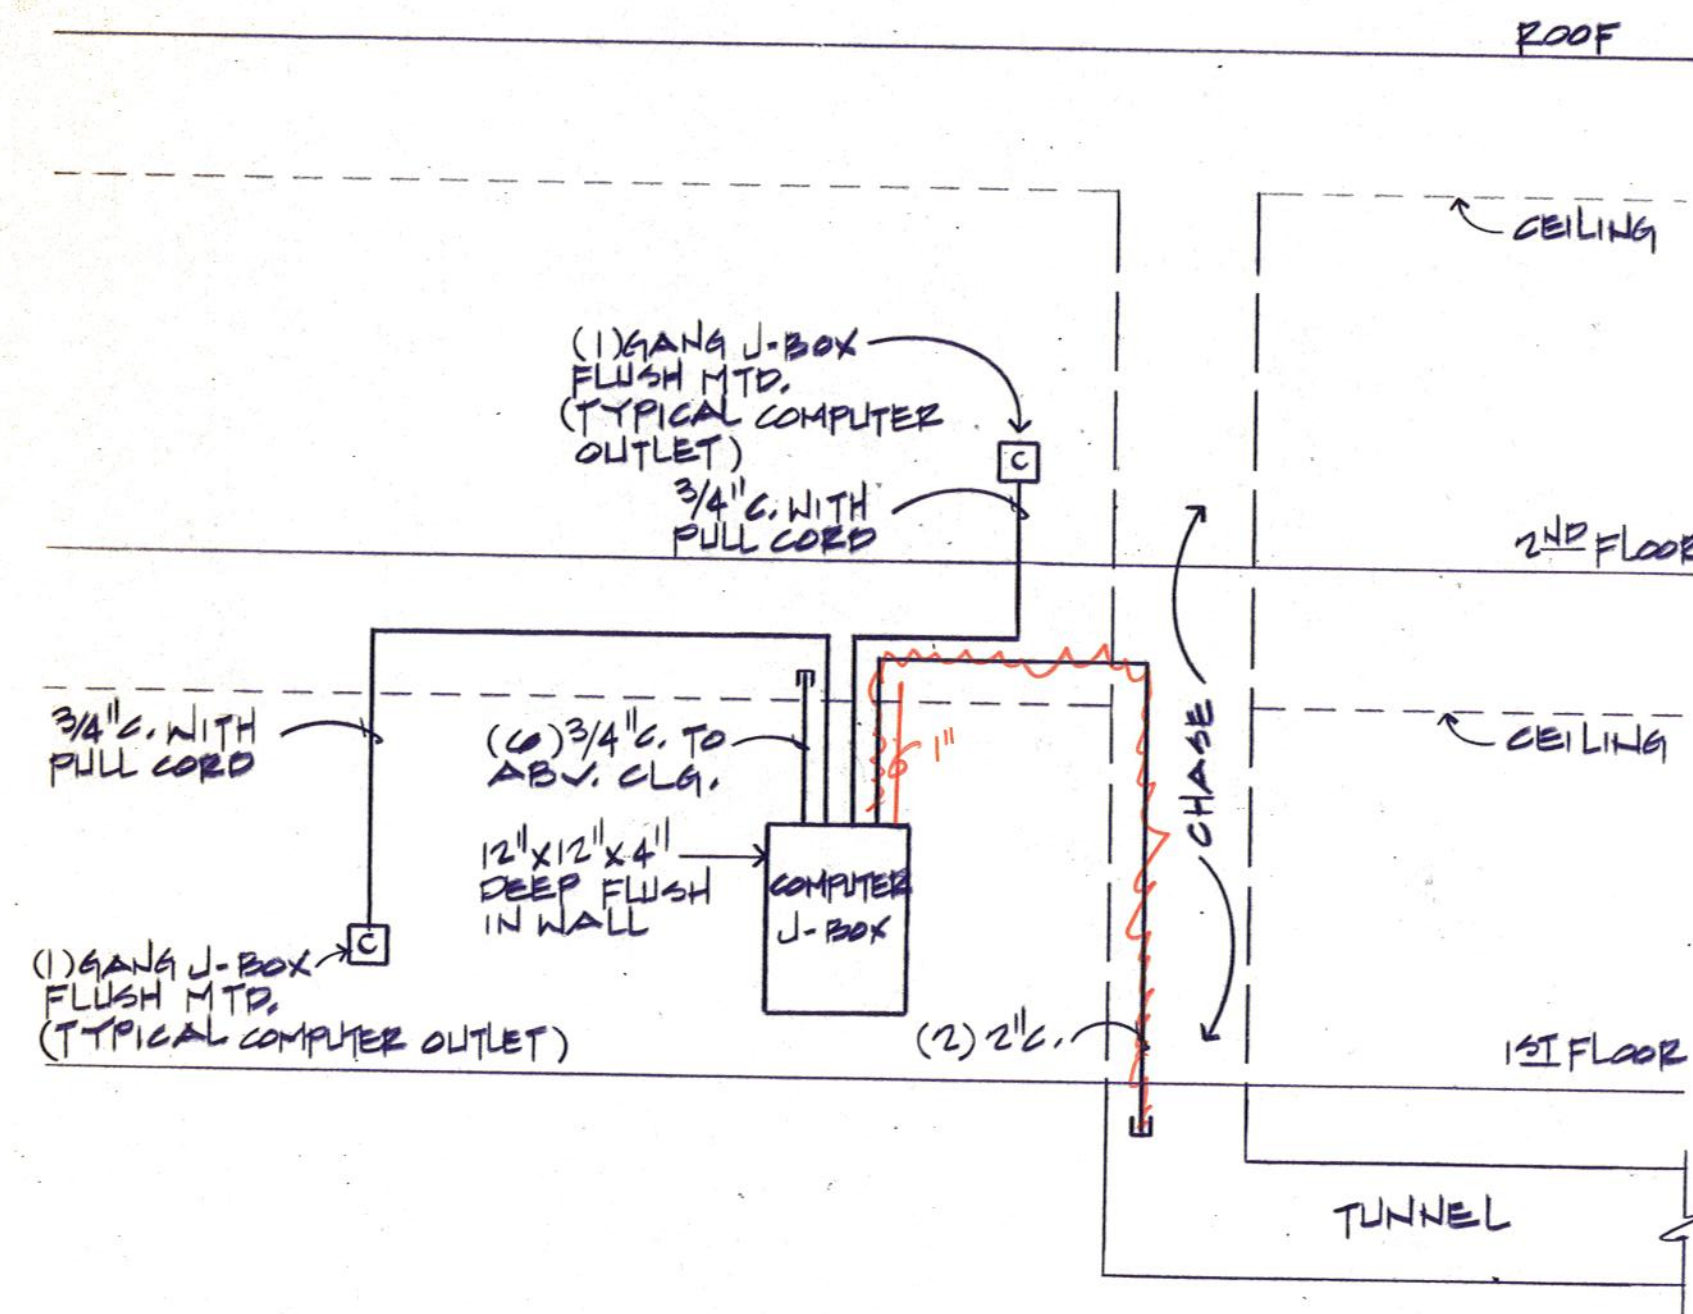 ROOF
CEILING
(1) GANG J-BOX
FLUSH MTD.
(TYPICAL COMPUTER
OUTLET)
C
3/4"C. WITH
PULL CORD
2ND FLOOR
3/4"C. WITH
PULL CORD
(6) 3/4"C. TO
ABV. CLG.
6 1"
CHASE
CEILING
12"x12"x4"
DEEP FLUSH
IN WALL
COMPUTER
J-BOX
C
(1) GANG J-BOX
FLUSH MTD.
(TYPICAL COMPUTER OUTLET)
(2) 2"C.
1ST FLOOR
TUNNEL